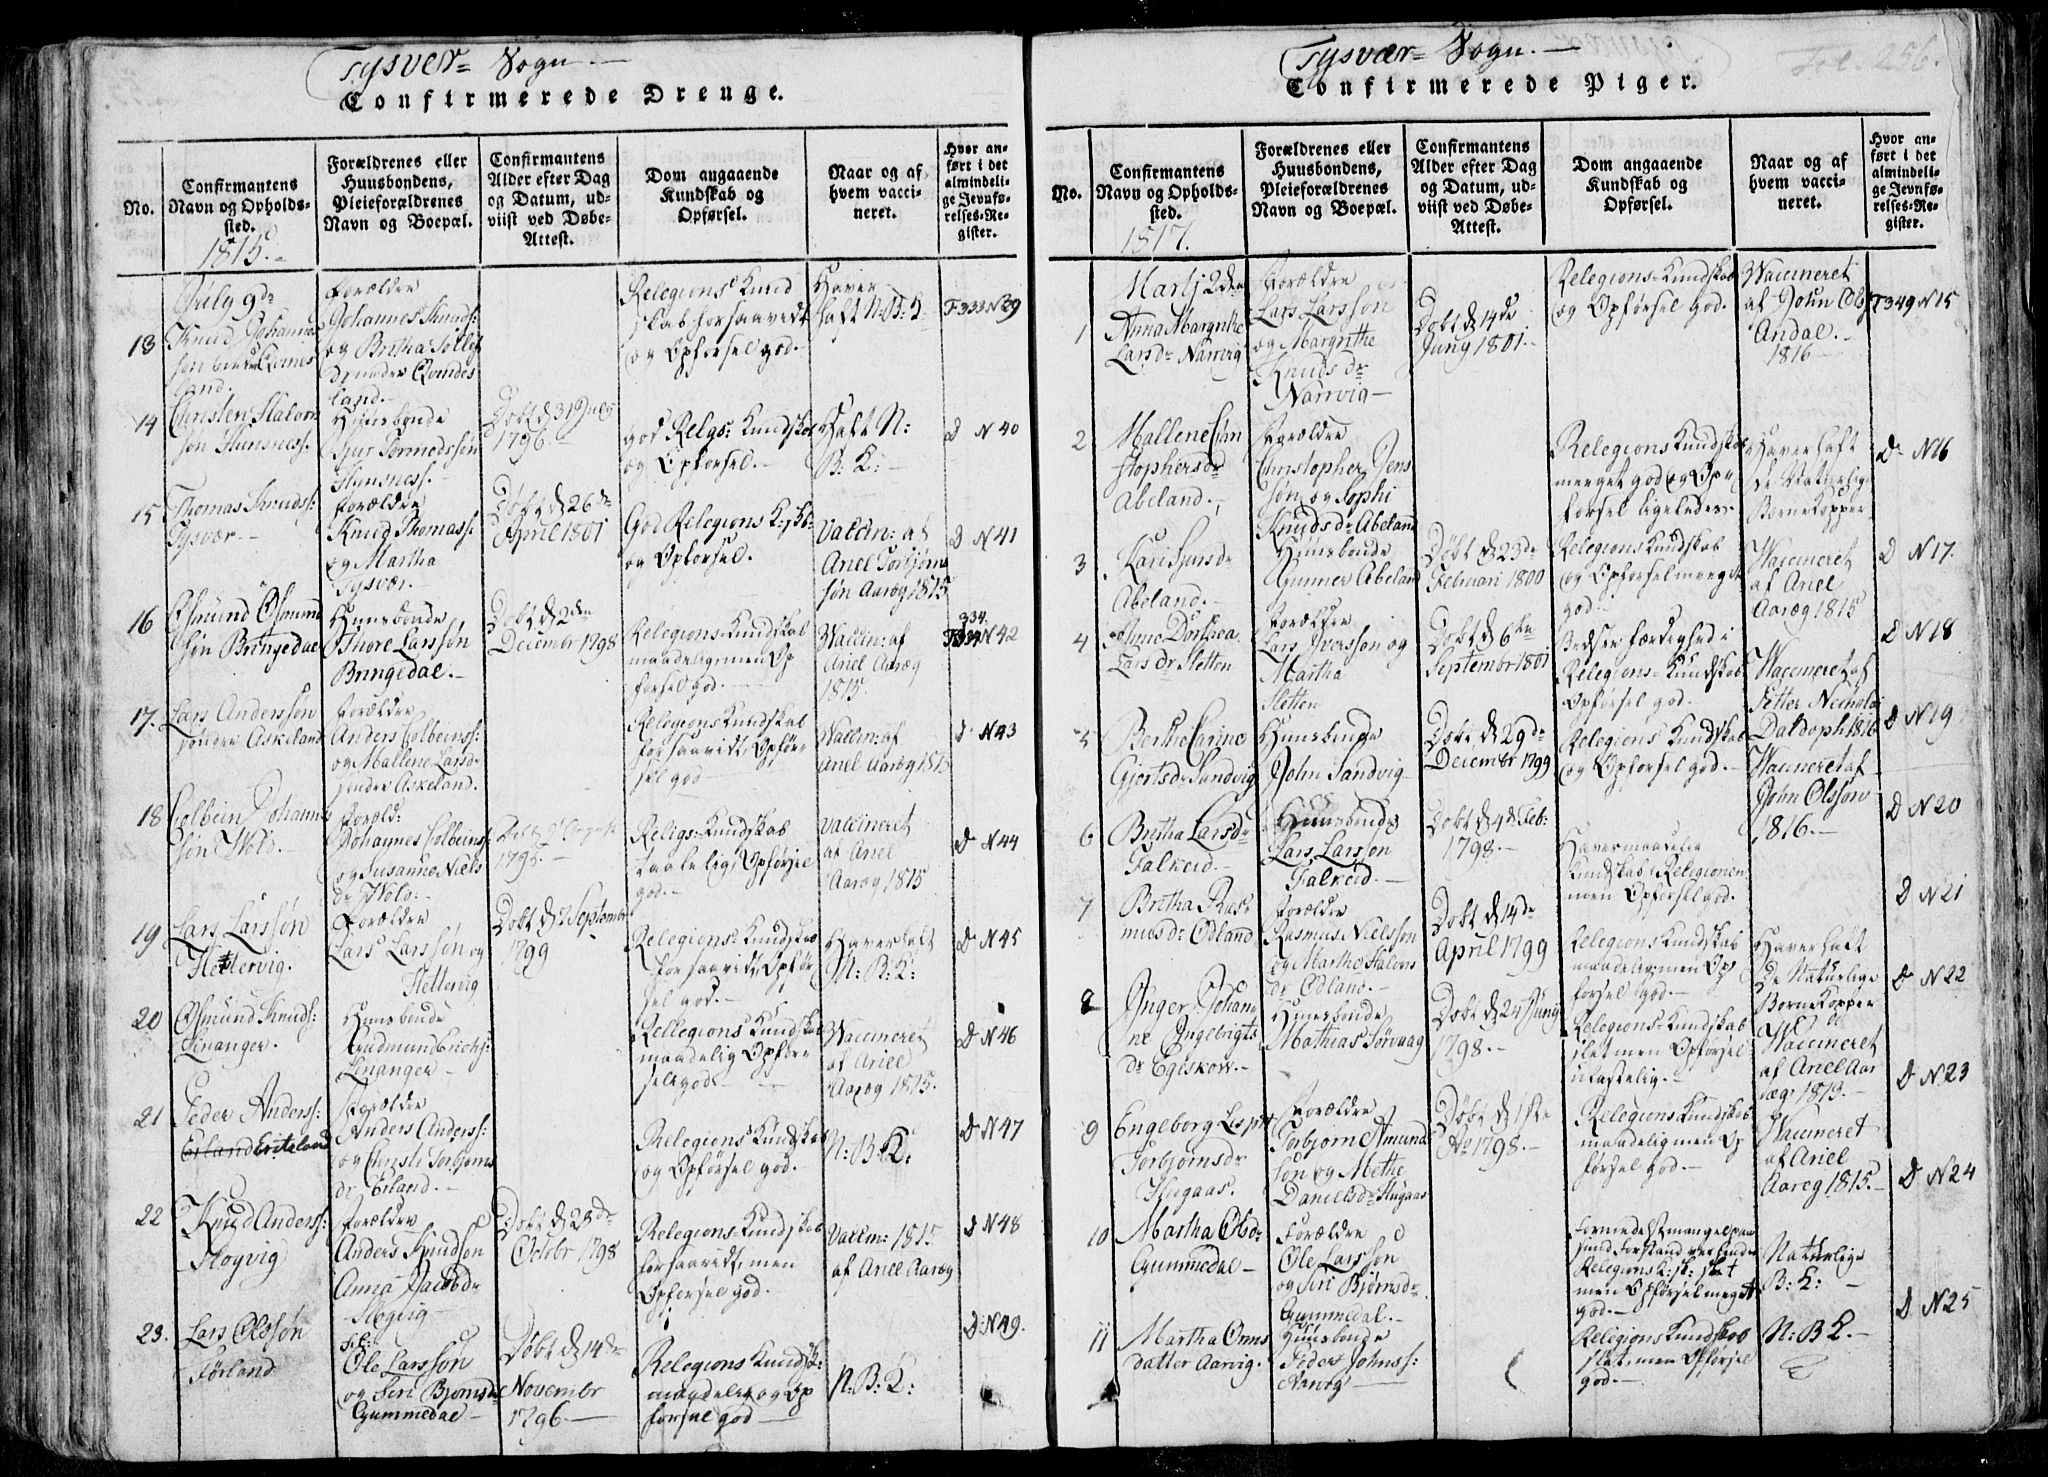 Tysvær= Sogn.—
Confirmerede Drenge.
No.
Confirmantens
Navn og Opholds-
sted.
Forældrenes eller
Huusbondens,
Pleieforældrenes
Navn og Boepæl.
Confirmantens
Alder efter Dag
og Datum, ud-
viist ved Døbe-
Attest.
Dom angaaende
Kundskab og
Opførsel.
Naar og af
hvem vacci-
neret.
Hvor an-
ført i det
almindeli-
ge Jevnfø-
relses-Re-
gister.
1815.
July 9de
13
Knud Johannes
søn
land.
Forældre
Johannes Knuds:
og Britha
land.
Religions Kund
skab forsaavidt
og Opførsel god.
Haver
haft N: B: K:
F 333 N 39
14
Christen Halvor
søn Hunsness.
Huusbonde
Siur Tormodssøn
Hunsness.
Døbt d 31 July
1796.
god Relgs: Kundskab
og Opførsel.
Haft N:
B: K:
D N 40
15
Thomas Knuds:
Tysvær.
Forældre
Knud Thomass:
og Martha
Tysvær.
Døbt d 26de
April 1801
God Religions K:skb:
og Opførsel.
Vaccin: af
Ariel Torbjørn
søn Aaræg 1815
D N 41
16
Osmund Osmund
søn Bringedal
Huusbonde
Snore Larssøn
Bringedal.
Døbt d 2den
Decembr 1798
Religions-Kundskab
maadelig, men Op
førsel god.
Vaccin: af
Ariel Aaræg
1815.
334.
N 42
17.
Lars Anderssøn
søndre Askeland
Forældre
Anders Colbeins:
og Mallene Larsd
søndre Askeland.
Religions Kundskab
forsaavidt, Opfør
sel god
Vaccin: af
Ariel Aaræg 1815
D N 43
18
Colbein Johannes
søn Wold.
Foræld:
Johannes Colbeins
og Susanna Niels
dr Wold.
1795.
Religs: Kundskab
taalelig, Opførsel
god.
Vaccineret
af Ariel
Aaræg 1815
D N 44
19
Lars Larssøn
Hettervig.
Forældre
Lars Larssøn og
Hettervig
Døbt d Septembr
1799
Religions: Kundskab
forsaavidt, Opfør
sel god.
Haver haft
N: B: K:
D N 45
20
Osmund Knuds:
Linanger.
Huusbonde
Gudmund Erichs:
Linanger
Rellegions Kundskab
maadelig Opføre
sel god
Waccineret
af Ariel
Aaræg 1815.
D N 46
21
Peder Anderss:
Forældre
Anders Anderss:
og Christi Torbjørns
dr Erland.
Religions Kundskab
og Opførsel god.
N: B: K:
D N 47
22
Knud Anderss:
Slogvig
Forældre
Anders Knudsøn
Anna Jacobdr
Slogvig
Døbt d 28de
Octobr 1798
Religions-Kundskab
forsaavidt, men
Opførsel god.
Vaccin: 1815
af Ariel Aaræg
D N 48
23.
Lars Olssøn
Førland
Ole Larssøn
og Siri Bjørnsdr
Gummedal
Døbt d 14de
Novembr
1796.
Religions Kundsk:
maadelig og Op
førsel god
N: B: K:
D: N 49.
Tysvær= Sogn.—
Fol. 256.
Confirmerede Piger.
No.
Confirmantens
Navn og Opholds-
sted.
Forældrenes eller
Huusbondens,
Pleieforældrenes
Navn og Boepæl.
Confirmantens
Alder efter Dag
og Datum, ud-
viist ved Døbe-
Attest.
Dom angaaende
Kundskab og
Opførsel.
Naar og af
hvem vacci-
neret.
Hvor an-
ført i det
almindeli-
ge Jevnfø-
relses-Re-
gister.
1817.
Martj 2den
1
Anna Margrethe
Larsdr Narrvig
Forældre
Lars Larssøn
og Margrethe
Knuds dr
Narrvig
Døbt d 14de
Juny 1801.
Religions-Kundskab
og Opførsel god.
Waccineret
af John Ols
Andal.
1816
F 349 N 15
2
Mallene Chri
stophersdr
Abeland.
Forældre
Christopher Jens
søn og Sophi
Knudsdr Abeland
Religions Kundskab
meeget god og Op
førsel ligeledes.
Haver haft
De Naturlige
Børne Kopper
D N 16
3
Kari Siursdr
Abeland.
Huusbonde
Gunner Abeland
Døbt d 23de
Februari 1800
Religions Kundskab
og Opførsel meeget
god.
Waccineret
af Ariel
Aaræg 1815
D N 17.
4
Anne Dorthea
Lars dr Sletten
Forældre
Lars Iverssøn og
Martha
Sletten
Døbt d 6te
Septembr 1801
Bedste færdighed i
Religions-Kundskab
Opførsel god.
Waccineret af
Petter Nicholai
Daldoph 1816
D N 18
5
Berthe Carine
Gjertsdr Sandvig
Huusbonde
John Sandvig
Døbt d 29de
Decembr 1799
Religions Kundskab
og Opførsel god.
Waccineret af
John Olssøn
1816.
D N 19
6
Britha Larsdr
Falkeid.
Huusbonde
Lars Larssøn
Falkeid.
Døbt d 4de Feb:
1798.
Haver maadelig
Kundskab i Religionen
men Opførsel god.
D N 20
7
Britha Ras
musdr Ødland
Forældre
Rasmus Nielssøn
og Marthe Halvors
dr Ødland.
Døbt d 14de
April 1799
Religions Kundskab
maadelig, men Op
førsel god.
Haver haft
De Naturlige
Børne Kopper
D N 21
8
Inger Johan
ne Ingebrigts
dr Egeskow.
Huusbonde
Mathias Sørvaag
Døbt d 24 Juny
1798.
Religions-Kundskab
slet men Opførsel
ulastelig.
Waccineret
af Ariel Aar
æg 1813.
D N 22
9
Engeborg
Torbjørnsdr
Hugaas.
Forældre
Torbjørn Amund
søn og Methe
Danielsdr Hugaas
Døbt d 1ste
1798.
Religions Kundskab
maadelig men Op
førsel god.
Waccineret
af Ariel
Aaræg 1815.
D N 23
10
Martha Olsdr
Gummedal
Forældre
Ole Larssøn
og Siri Bjørnsdr
Gummedal.
Religions K: sk: slet
men Opførsel meget
god.
Naturlige
B: K:
D N 24
11
Martha Orms
datter Aarvig.
Huusbonde
Peder Johnss:
Religions Kundskab
slet, men Opførsel
god.
N: B K.
D N 25